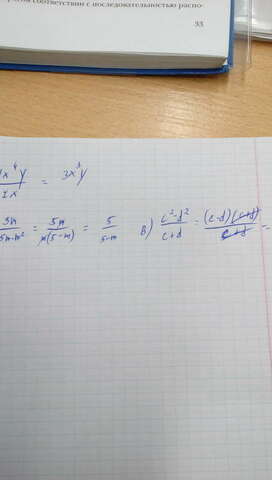 соответствии с последовательностью распо-
33
x⁴y / 2x = 3x³y
5m / 5m-m² = 5m / m(5-m) = 5 / 5-m    в) c²-d² / c+d = (c-d)(c+d) / c+d =